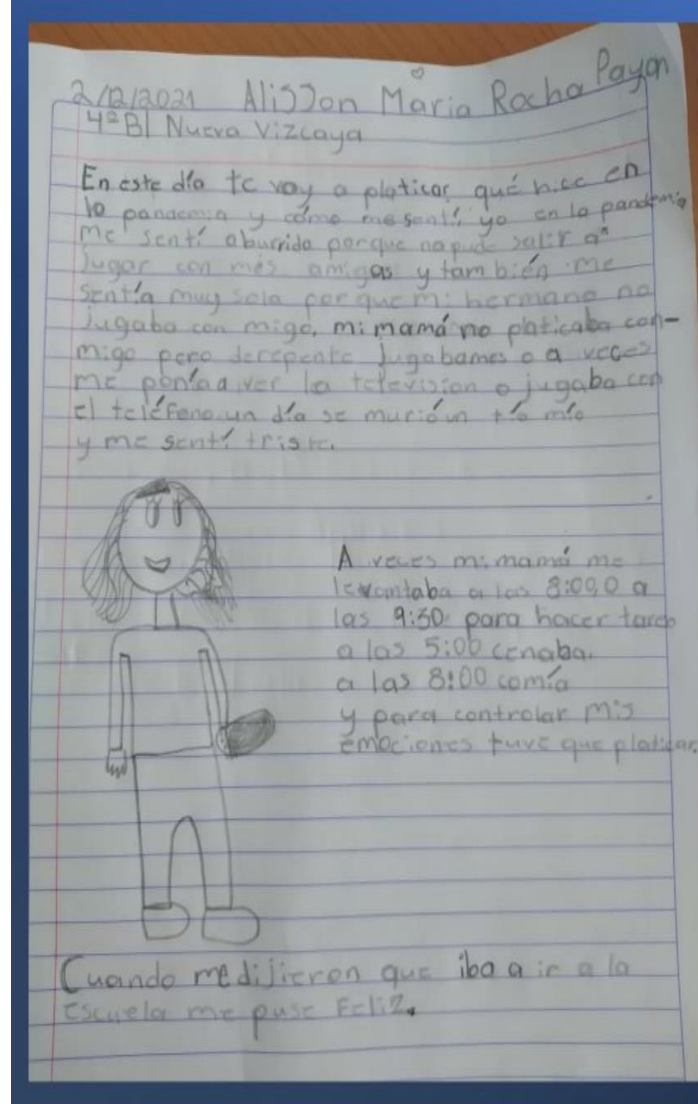 2/12/2021 Alisson Maria Rocha Payan
4ºB1 Nueva Vizcaya
En este día te voy a platicar qué hice en
la pandemia y cómo me sentí yo en la pandemia
me sentí aburrida porque no pude salir a
jugar con mis amigas y también me
sentía muy sola porque mi hermano no
jugaba con migo, mi mamá no platicaba con-
migo pero derepente jugabamos o a veces
me ponía a ver la television o jugaba con
el teléfono un día se murió un tío mío
y me sentí triste.
A veces mi mamá me
levantaba a las 8:00, o a
las 9:30 para hacer tarea
a las 5:00 cenaba.
a las 8:00 comía
y para controlar mis
emociones tuve que platicar.
Cuando medijieron que iba a ir a la
escuela me puse Feliz.